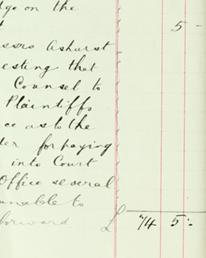 on the
5 -
Ashurst
esting that
Counsel to
Plaintiffs
as to the
for paying
into Court
Office several
unable to
forward £ 74 5 -